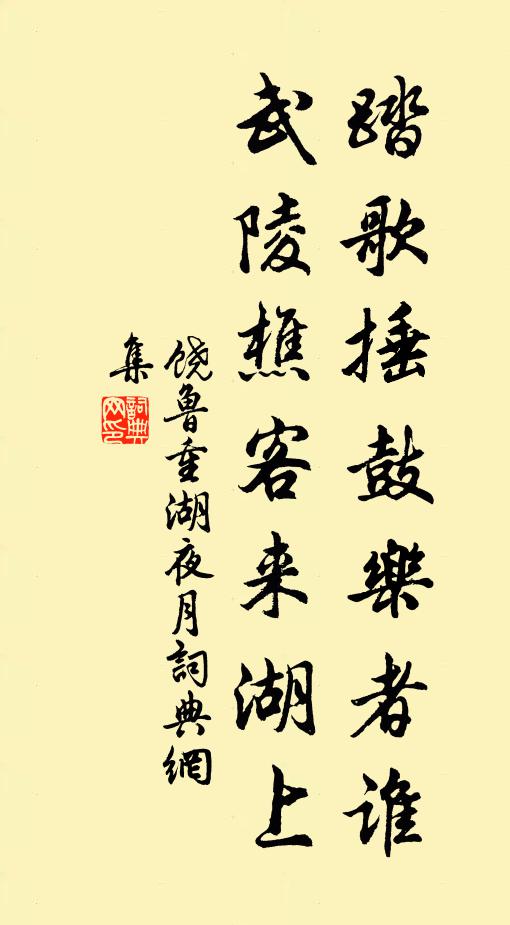 踏歌捶鼓樂者谁
武陵樵客来湖上
饶鲁重湖夜月詞典網
集
詞典网印